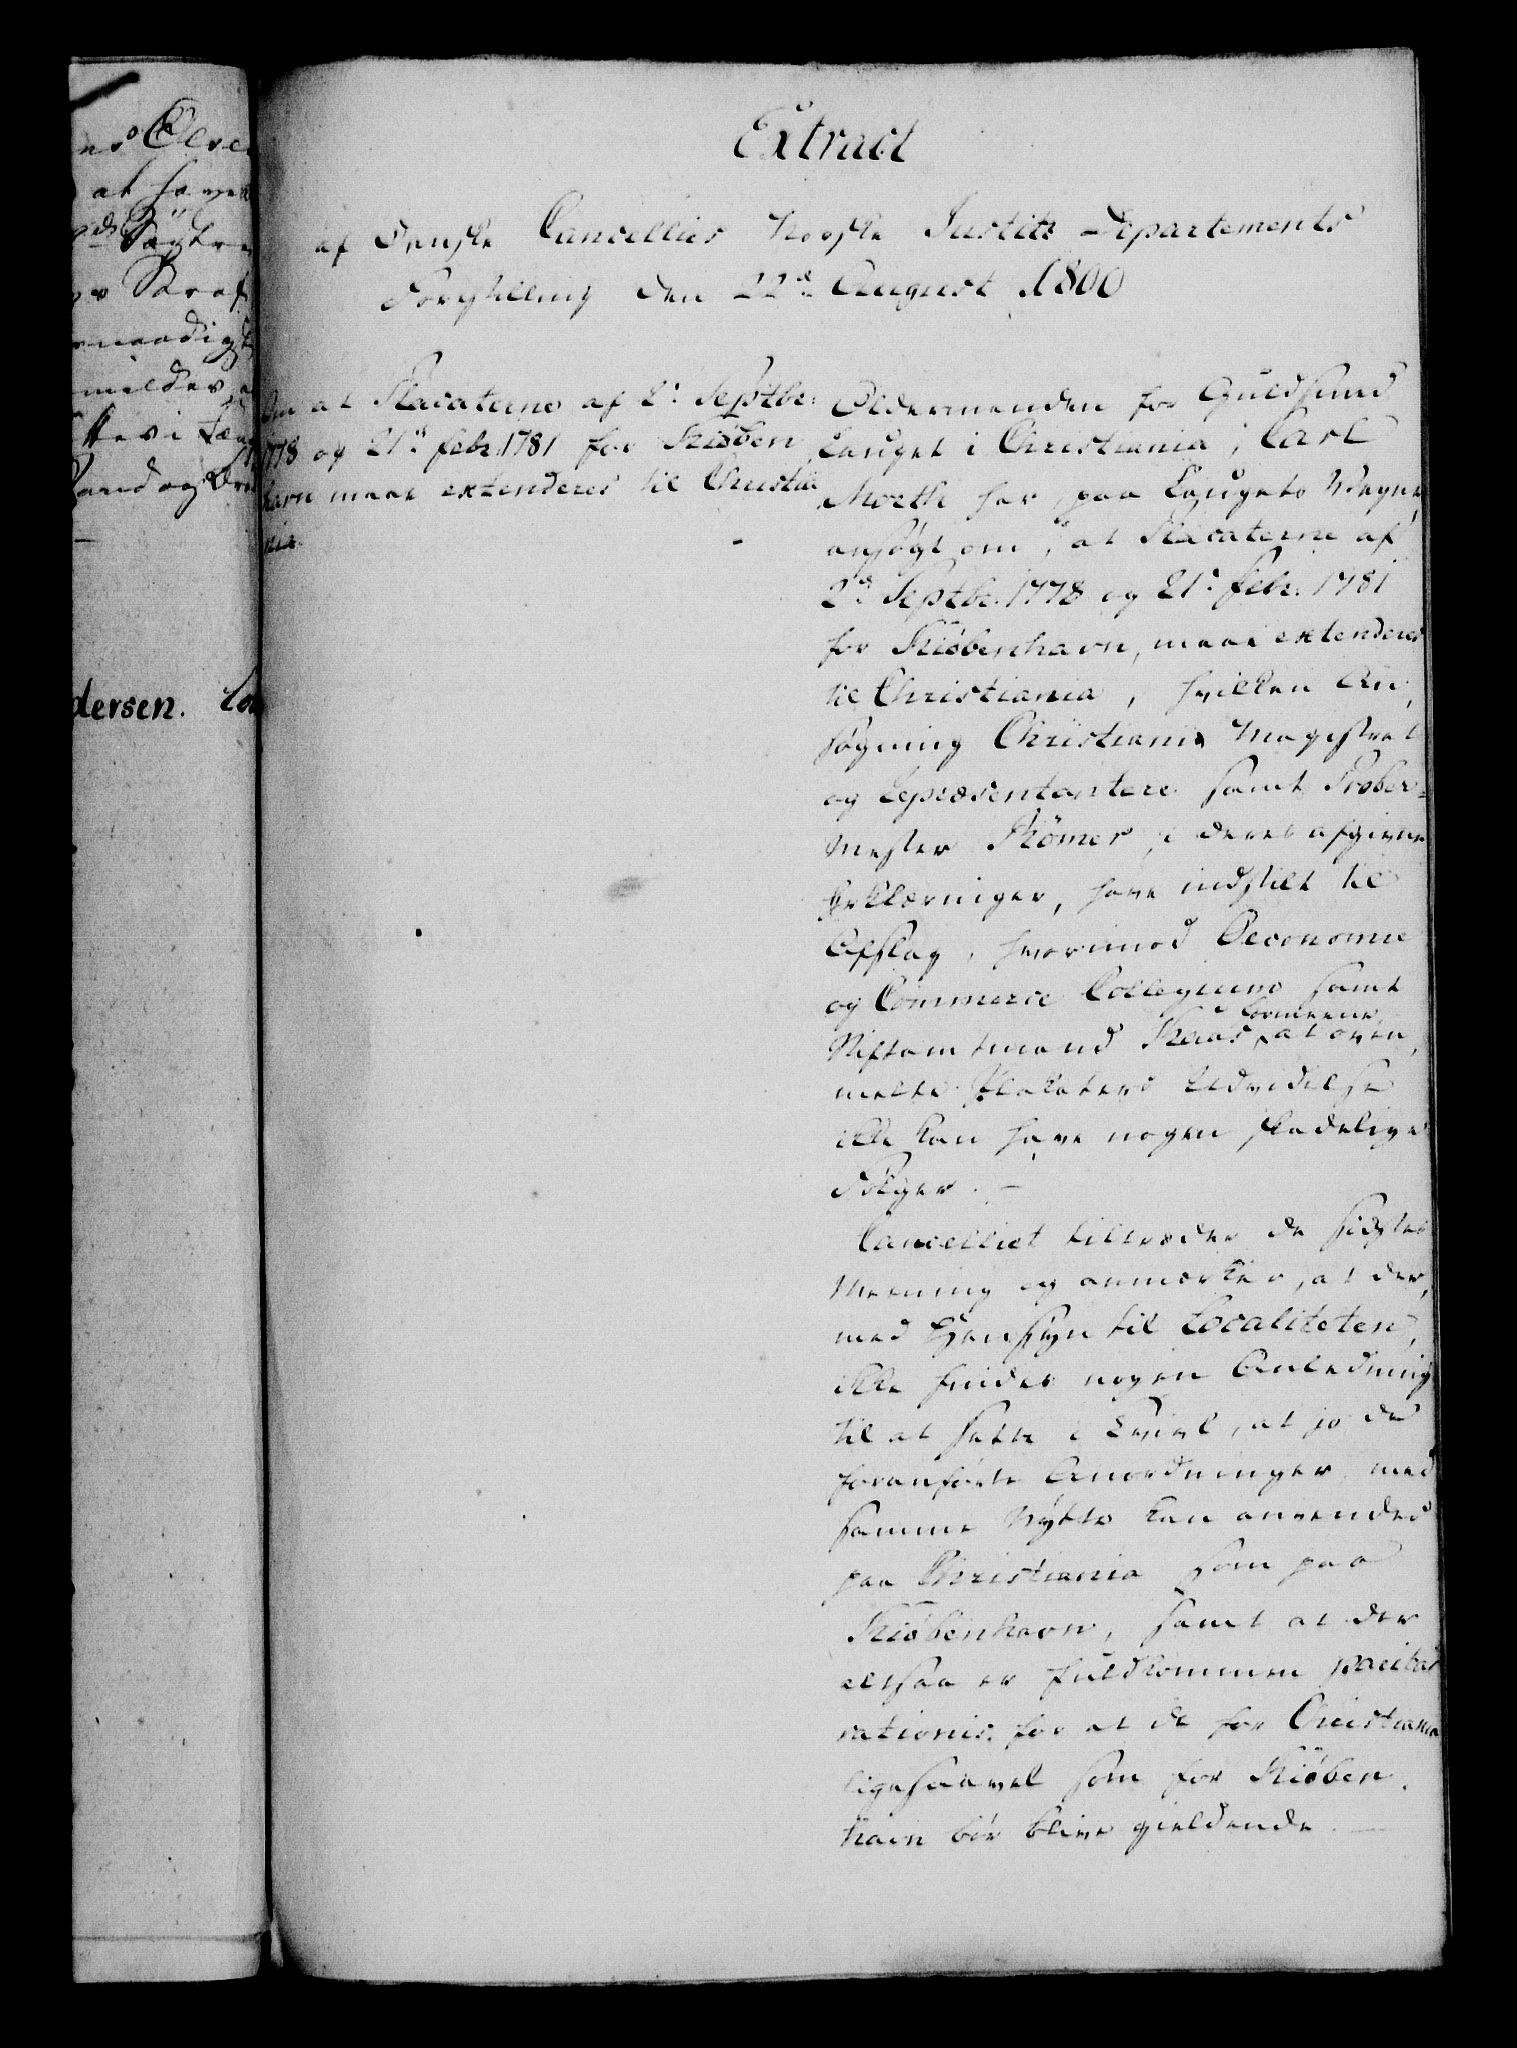 Extract
af Danske Cancellies Norske Justits-Departements
Forestilling den 22d August 1800
Om at Placaterne af 2d Septbr:
1778 og 21d febr. 1781 for Kiøben
havn maae extenderes til Christia
nia.
Oldermanden for Guldsmed
Lauget i Christiania, Carl
Moeth har paa Laugets Vegne,
ansøgt om, at Placaterne af
2d Septbr. 1778 og 21d febr. 1781
for Kiøbenhavn, maae extenderes
til Christiania, hvilken An,
søgning Christiania Magistrat
og Repræsentantere samt Prober-
mester Römer i deres afgivne
Erklæringer, have indstilt til
Afslag, hvorimod Oeconomie
og Commerce Collegium samt
Stiftamtmand Kaas formeene, at oven,
meldte Placaters Udvidelse
ikke kan have nogen skadelige
Følger. —
Cancelliet tiltræder de sidstes
Meening og anmærker, at der,
med Hensyn til Localiteten,
ikke findes nogen Anledning
til at sætte i Tvivl, at jo de
foranførte Anordninger med
samme Nytte kan anvendes
paa Christiania som paa
Kiøbenhavn, samt at der
altsaa er fuldkommen paritas
rationis for at de for Christiania
ligesaavel som for Kiøben,
havn bør blive gieldende. —
at have
dersen.